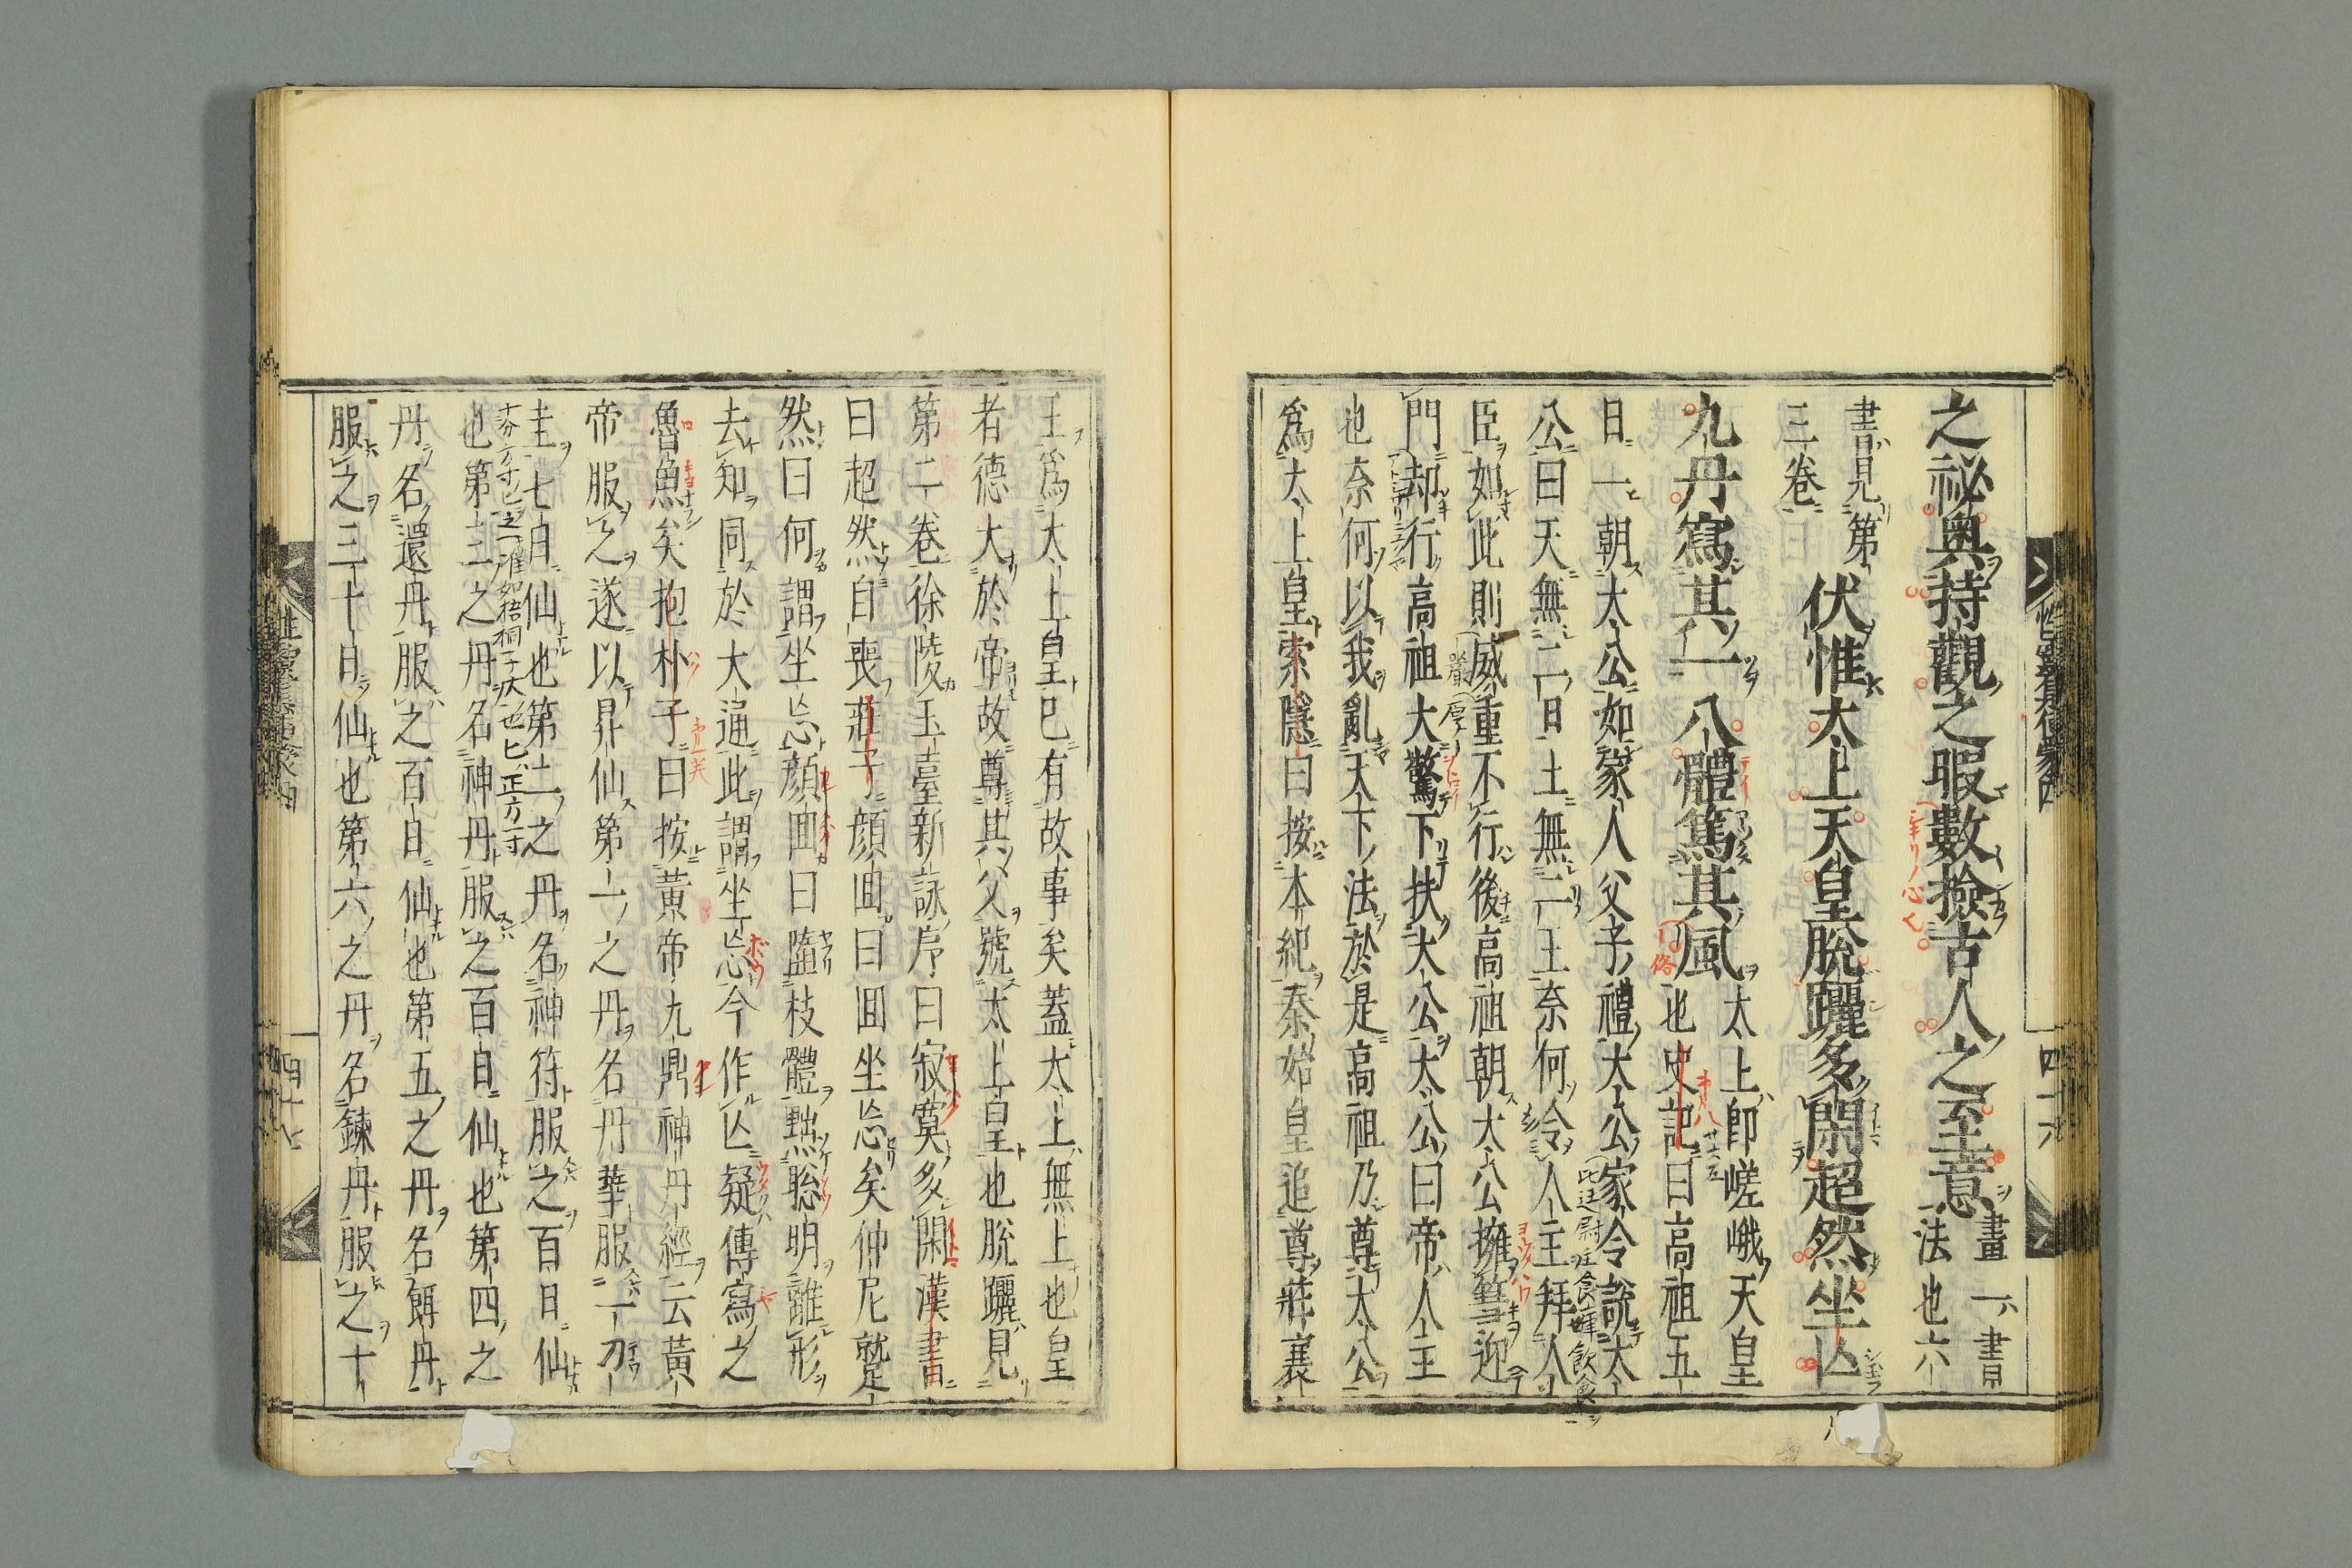 之祕奥持觀之暇數撿古人之至意畫一書
法也六
書見第
三卷
伏惟太上天皇脱躧多閑超然坐亾
九丹寫其一八體篤其風太上即嵯峨天皇
也史記曰高祖五
日一朝太公如家人父子禮大公家令説太
公曰天無二日土無二王奈何令人主拜人
臣如此則威重不行後高祖朝太公擁篲迎
門却行高祖大驚下扶大公大公曰帝人主
也奈何以我亂天下法於是高祖乃尊太公
爲太上皇索隱曰按本紀秦始皇追尊莊襄
四十六
王爲太上皇已有故事矣蓋太上無上也皇
者德大於帝故尊其父號太上皇也脱躧見
第二卷徐陵玉臺新詠序曰寂寞多閑漢書
曰超然自喪莊子顔囬曰囬坐忘矣仲尼蹵
然曰何謂坐忘顔囬曰墮枝體黜聡明離形
去知同於大通此謂坐忘今作亾疑傳寫之
魯魚矣抱朴子曰按黃帝九鼎神丹經云黃
帝服之遂以昇仙第一之丹名丹華服一刀
圭七日仙也第二之丹名神符服之百日仙
也第三之丹名神丹服之百日仙也第四之
丹名還丹服之百日仙也第五之丹名餌丹
服之三十日仙也第六之丹名鍊丹服之十
四十七